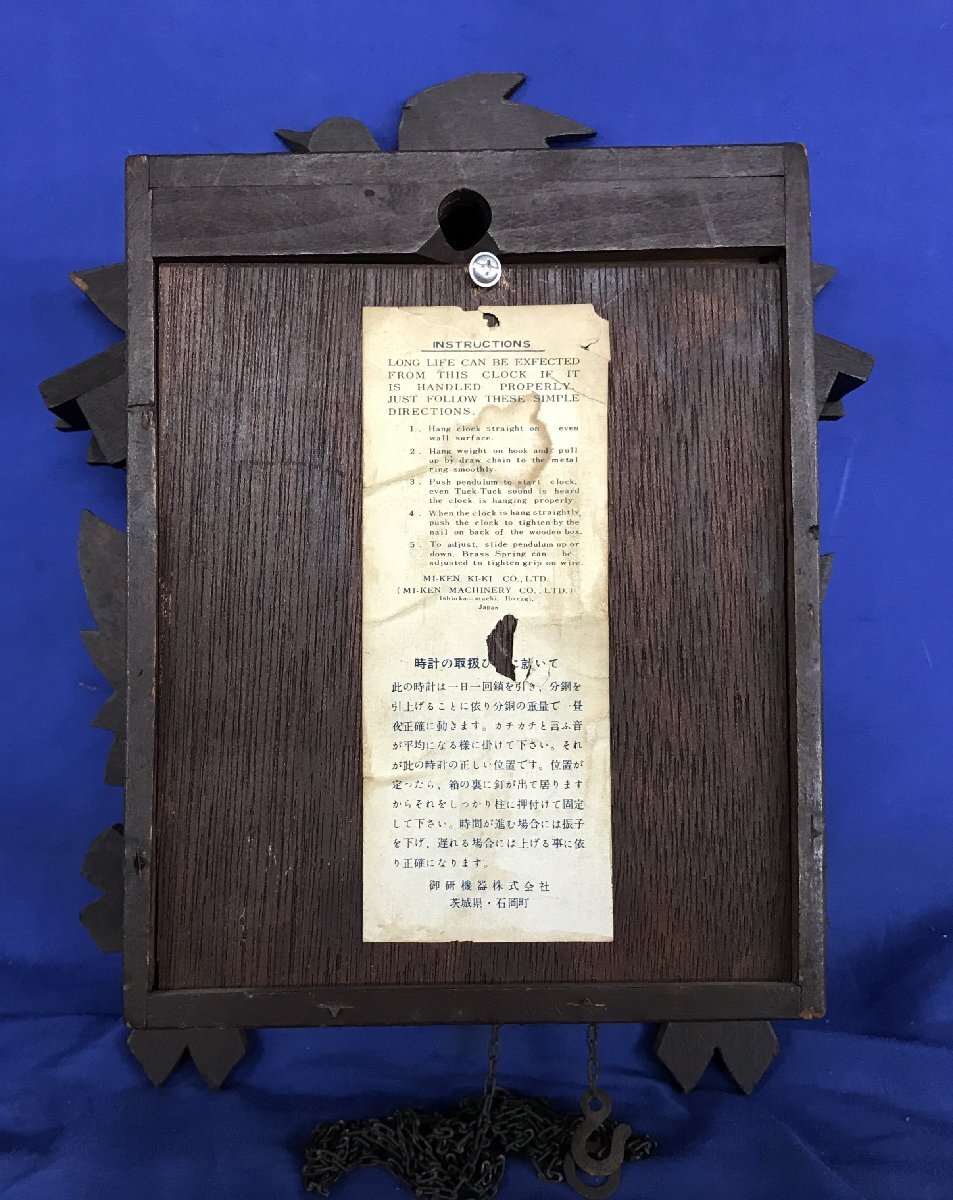 INSTRUCTIONS
LONG LIFE CAN BE EXFECTED
FROM THIS CLOCK IF IT
IS HANDLED PROPERLY,
JUST FOLLOW THESE SIMPLE
DIRECTIONS.
1. Hang clock straight on even
wall surface.
2. Hang weight on hook and pull
up by draw chain to the metal
ring smoothly.
3. Push pendulum to start clock,
even Tuck-Tuck sound is heard
the clock is hanging properly.
4. When the clock is hang straightly,
push the clock to tighten by the
nail on back of the wooden box.
5. To adjust, slide pendulum up or
down. Brass Spring can be
adjusted to tighten grip on wire.
MI-KEN KI-KI CO., LTD.
(MI-KEN MACHINERY CO., LTD.)
Ishioka-machi, Ibaragi,
Japan
時計の取扱ひに就いて
此の時計は一日一回鎖を引き、分銅を
引上げることに依り分銅の重量で一昼
夜正確に動きます。カチカチと言ふ音
が平均になる様に掛けて下さい。それ
が此の時計の正しい位置です。位置が
定ったら、箱の裏に釘が出て居ります
からそれをしっかり柱に押付けて固定
して下さい。時間が進む場合には振子
を下げ、遅れる場合には上げる事に依
り正確になります。
御研機器株式会社
茨城県・石岡町